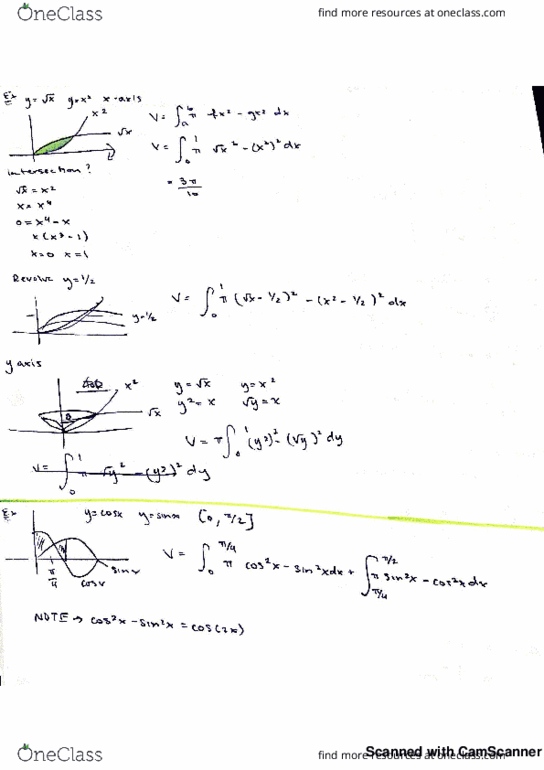 OneClass find more resources at oneclass.com
Ex y = √x y = x² x-axis
x²
√x
V = ∫ₐᵇ π fx² - gx² dx
V = ∫₀¹ π √x² - (x²)² dx
= 3π/10
intersection?
√x = x²
x = x⁴
0 = x⁴ - x
x(x³ - 1)
x = 0 x = 1
Revolve y = 1/2
y = 1/2
V = ∫₀¹ π (√x - 1/2)² - (x² - 1/2)² dx
y axis
x²
√x
y = √x y = x²
y² = x √y = x
V = π ∫₀¹ (y²)² - (√y)² dy
V = ∫₀¹ π √y² - (y²)² dy
Ex y = cosx y = sinx [0, π/2]
π/4
sinx
cosx
V = ∫₀^π/4 π cos²x - sin²x dx + ∫π/4^π/2 π sin²x - cos²x dx
NOTE → cos²x - sin²x = cos(2x)
Scanned with CamScanner
OneClass find more resources at oneclass.com